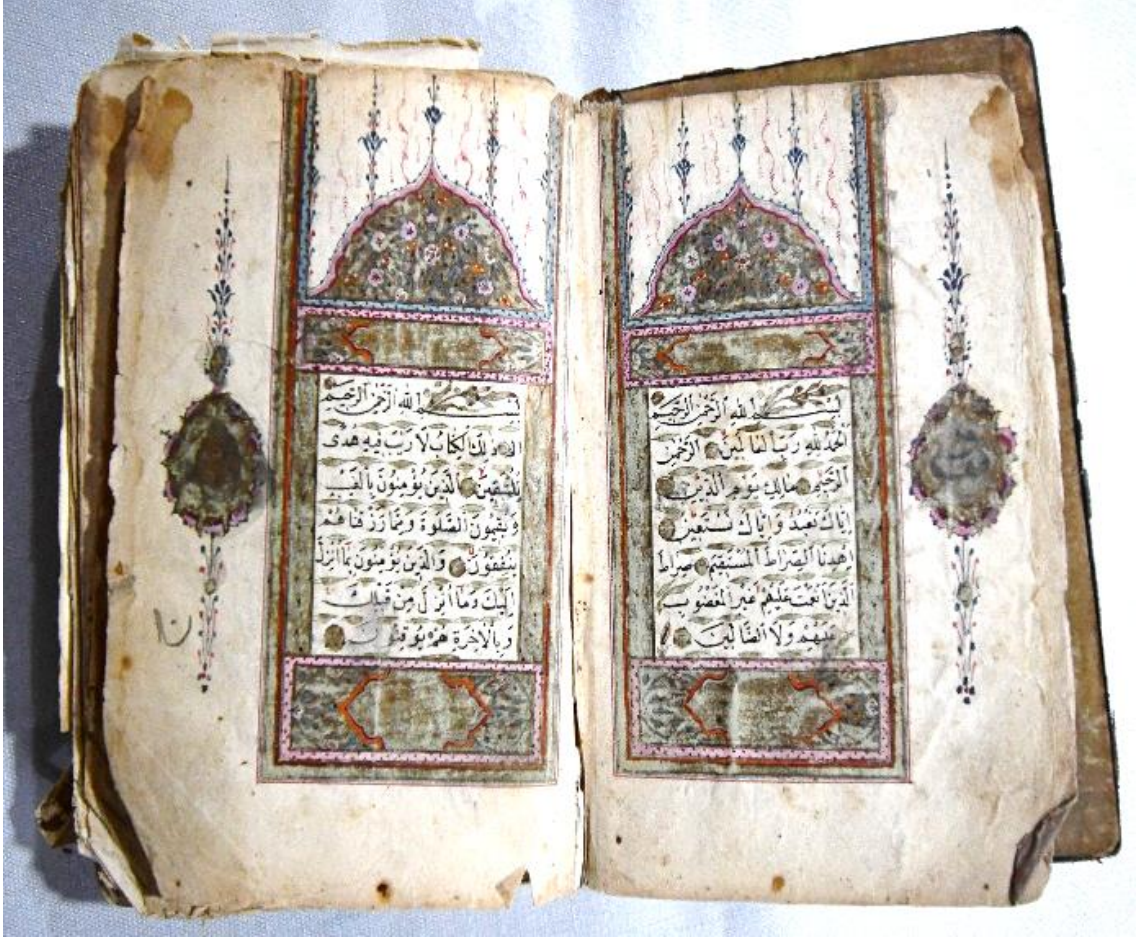 بِسْمِ اللهِ الرَّحْمٰنِ الرَّحِيمِ
اَلْحَمْدُ لِلّٰهِ رَبِّ الْعَالَمِينَ الرَّحْمٰنِ
الرَّحِيمِ مَالِكِ يَوْمِ الدِّينِ
اِيَّاكَ نَعْبُدُ وَاِيَّاكَ نَسْتَعِينُ
اِهْدِنَا الصِّرَاطَ الْمُسْتَقِيمَ صِرَاطَ
الَّذِينَ اَنْعَمْتَ عَلَيْهِمْ غَيْرِ الْمَغْضُوبِ
عَلَيْهِمْ وَلَا الضَّالِّينَ
بِسْمِ اللهِ الرَّحْمٰنِ الرَّحِيمِ
الم ذٰلِكَ الْكِتَابُ لَا رَيْبَ فِيهِ هُدًى
لِلْمُتَّقِينَ الَّذِينَ يُؤْمِنُونَ بِالْغَيْبِ
وَيُقِيمُونَ الصَّلٰوةَ وَمِمَّا رَزَقْنَاهُمْ
يُنْفِقُونَ وَالَّذِينَ يُؤْمِنُونَ بِمَا اُنْزِلَ
اِلَيْكَ وَمَا اُنْزِلَ مِنْ قَبْلِكَ
وَبِالْاٰخِرَةِ هُمْ يُوقِنُونَ